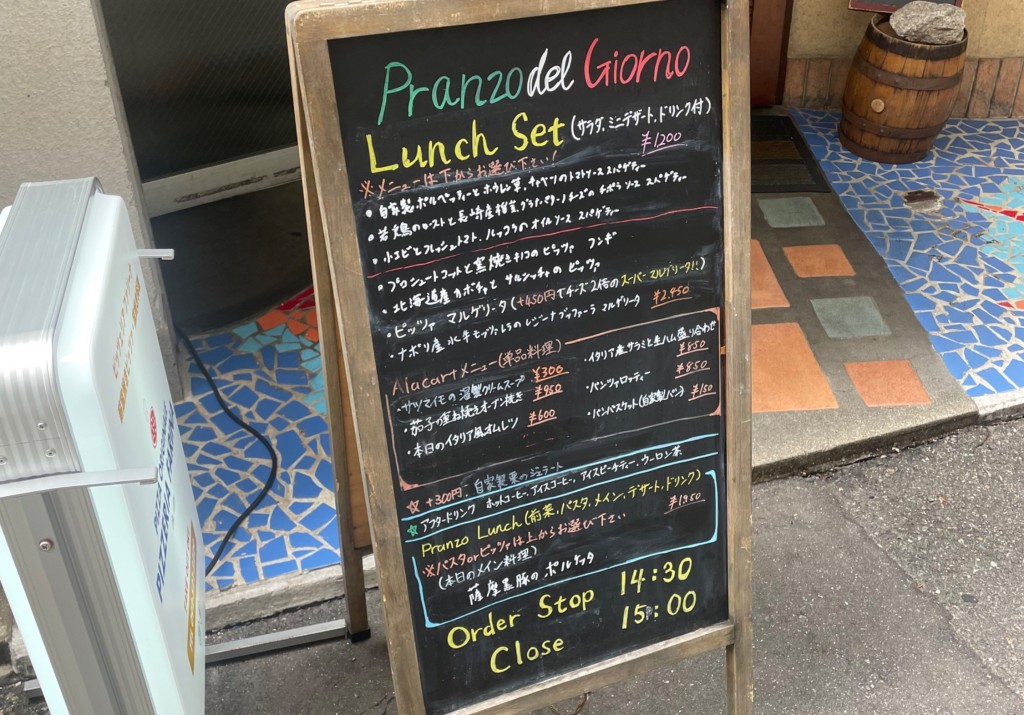 Pranzo del Giorno
Lunch Set (サラダ、ミニデザート、ドリンク付)
¥1200
※メニューは下からお選び下さい!
・自家製ポルペッティーとホウレン草、キャベツのトマトソース スパゲティー
・若鶏のローストと長崎産椎茸、グラナパダーノチーズの クリームソース スパゲティー
・小エビとフレッシュトマト、ルッコラのオイルソース スパゲティー
・プロシュートコットと窯焼きキノコのピッツァ フンギ
・北海道産カボチャと サルシッチャの ピッツァ
・ピッツァ マルゲリータ(+450円でチーズ2倍のスーパーマルゲリータ!!)
・ナポリ産 水牛モッツァレラの レジーナ ブッファーラ マルゲリータ ¥2.450
Alacartメニュー(単品料理)
・サツマイモの 温製クリームスープ ¥300
・茄子の重ね焼きオーブン焼き ¥950
・本日のイタリア風オムレツ ¥600
・イタリア産サラミと生ハム盛り合わせ ¥850
・パンツァロッティー ¥850
・パンバスケット(自家製パン) ¥150
☆ +300円、自家製栗のジェラート
☆ アフタードリンク ホットコーヒー、アイスコーヒー、アイスピーチティー、ウーロン茶
Pranzo Lunch(前菜、パスタ、メイン、デザート、ドリンク)
¥1950
※パスタorピッツァは上からお選び下さい
(本日のメイン料理)
薩摩黒豚の ポルケッタ
Order Stop 14:30
Close 15:00
PIZZERIA